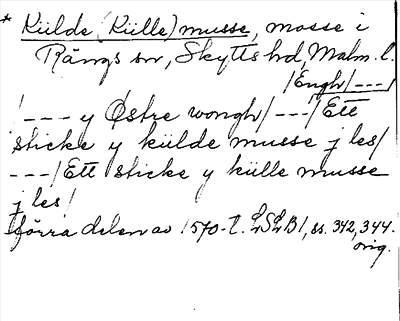 * Külde (Külle) musse, mosse i
Rängs sn, Skytts hd, Malm. l.
/Engh/---/
/--- y Østre wongh/---/Ett
sticke y külde musse j les/
---/Ett sticke y külle musse
j les/
förra delen av 1570-t. LSLB1, ss. 342, 344.
orig.